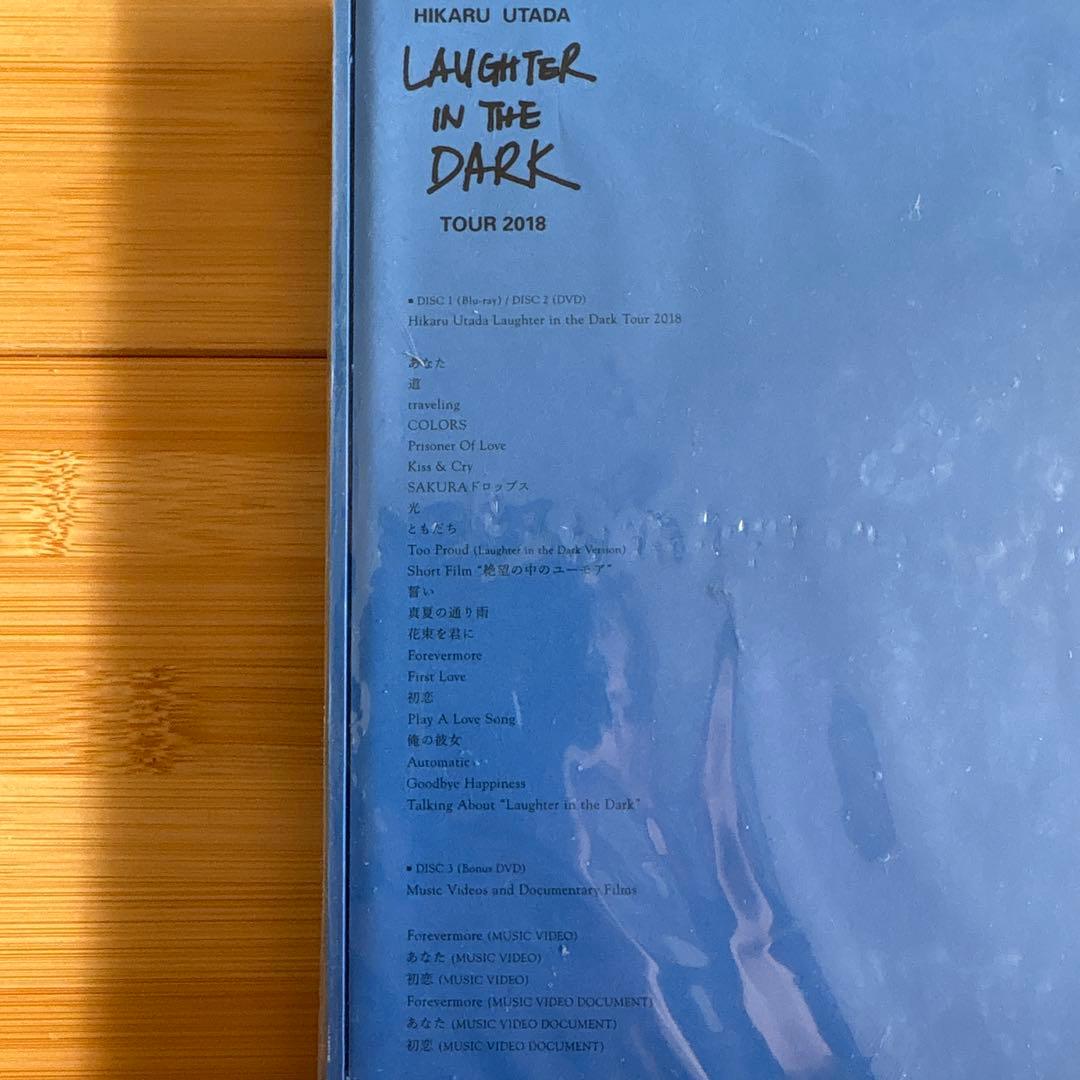 HIKARU UTADA
LAUGHTER
IN THE
DARK
TOUR 2018
■ DISC 1 (Blu-ray) / DISC 2 (DVD)
Hikaru Utada Laughter in the Dark Tour 2018
あなた
道
traveling
COLORS
Prisoner Of Love
Kiss & Cry
SAKURAドロップス
光
ともだち
Too Proud (Laughter in the Dark Version)
Short Film “絶望の中のユーモア”
誓い
真夏の通り雨
花束を君に
Forevermore
First Love
初恋
Play A Love Song
俺の彼女
Automatic
Goodbye Happiness
Talking About “Laughter in the Dark”
■ DISC 3 (Bonus DVD)
Music Videos and Documentary Films
Forevermore (MUSIC VIDEO)
あなた (MUSIC VIDEO)
初恋 (MUSIC VIDEO)
Forevermore (MUSIC VIDEO DOCUMENT)
あなた (MUSIC VIDEO DOCUMENT)
初恋 (MUSIC VIDEO DOCUMENT)